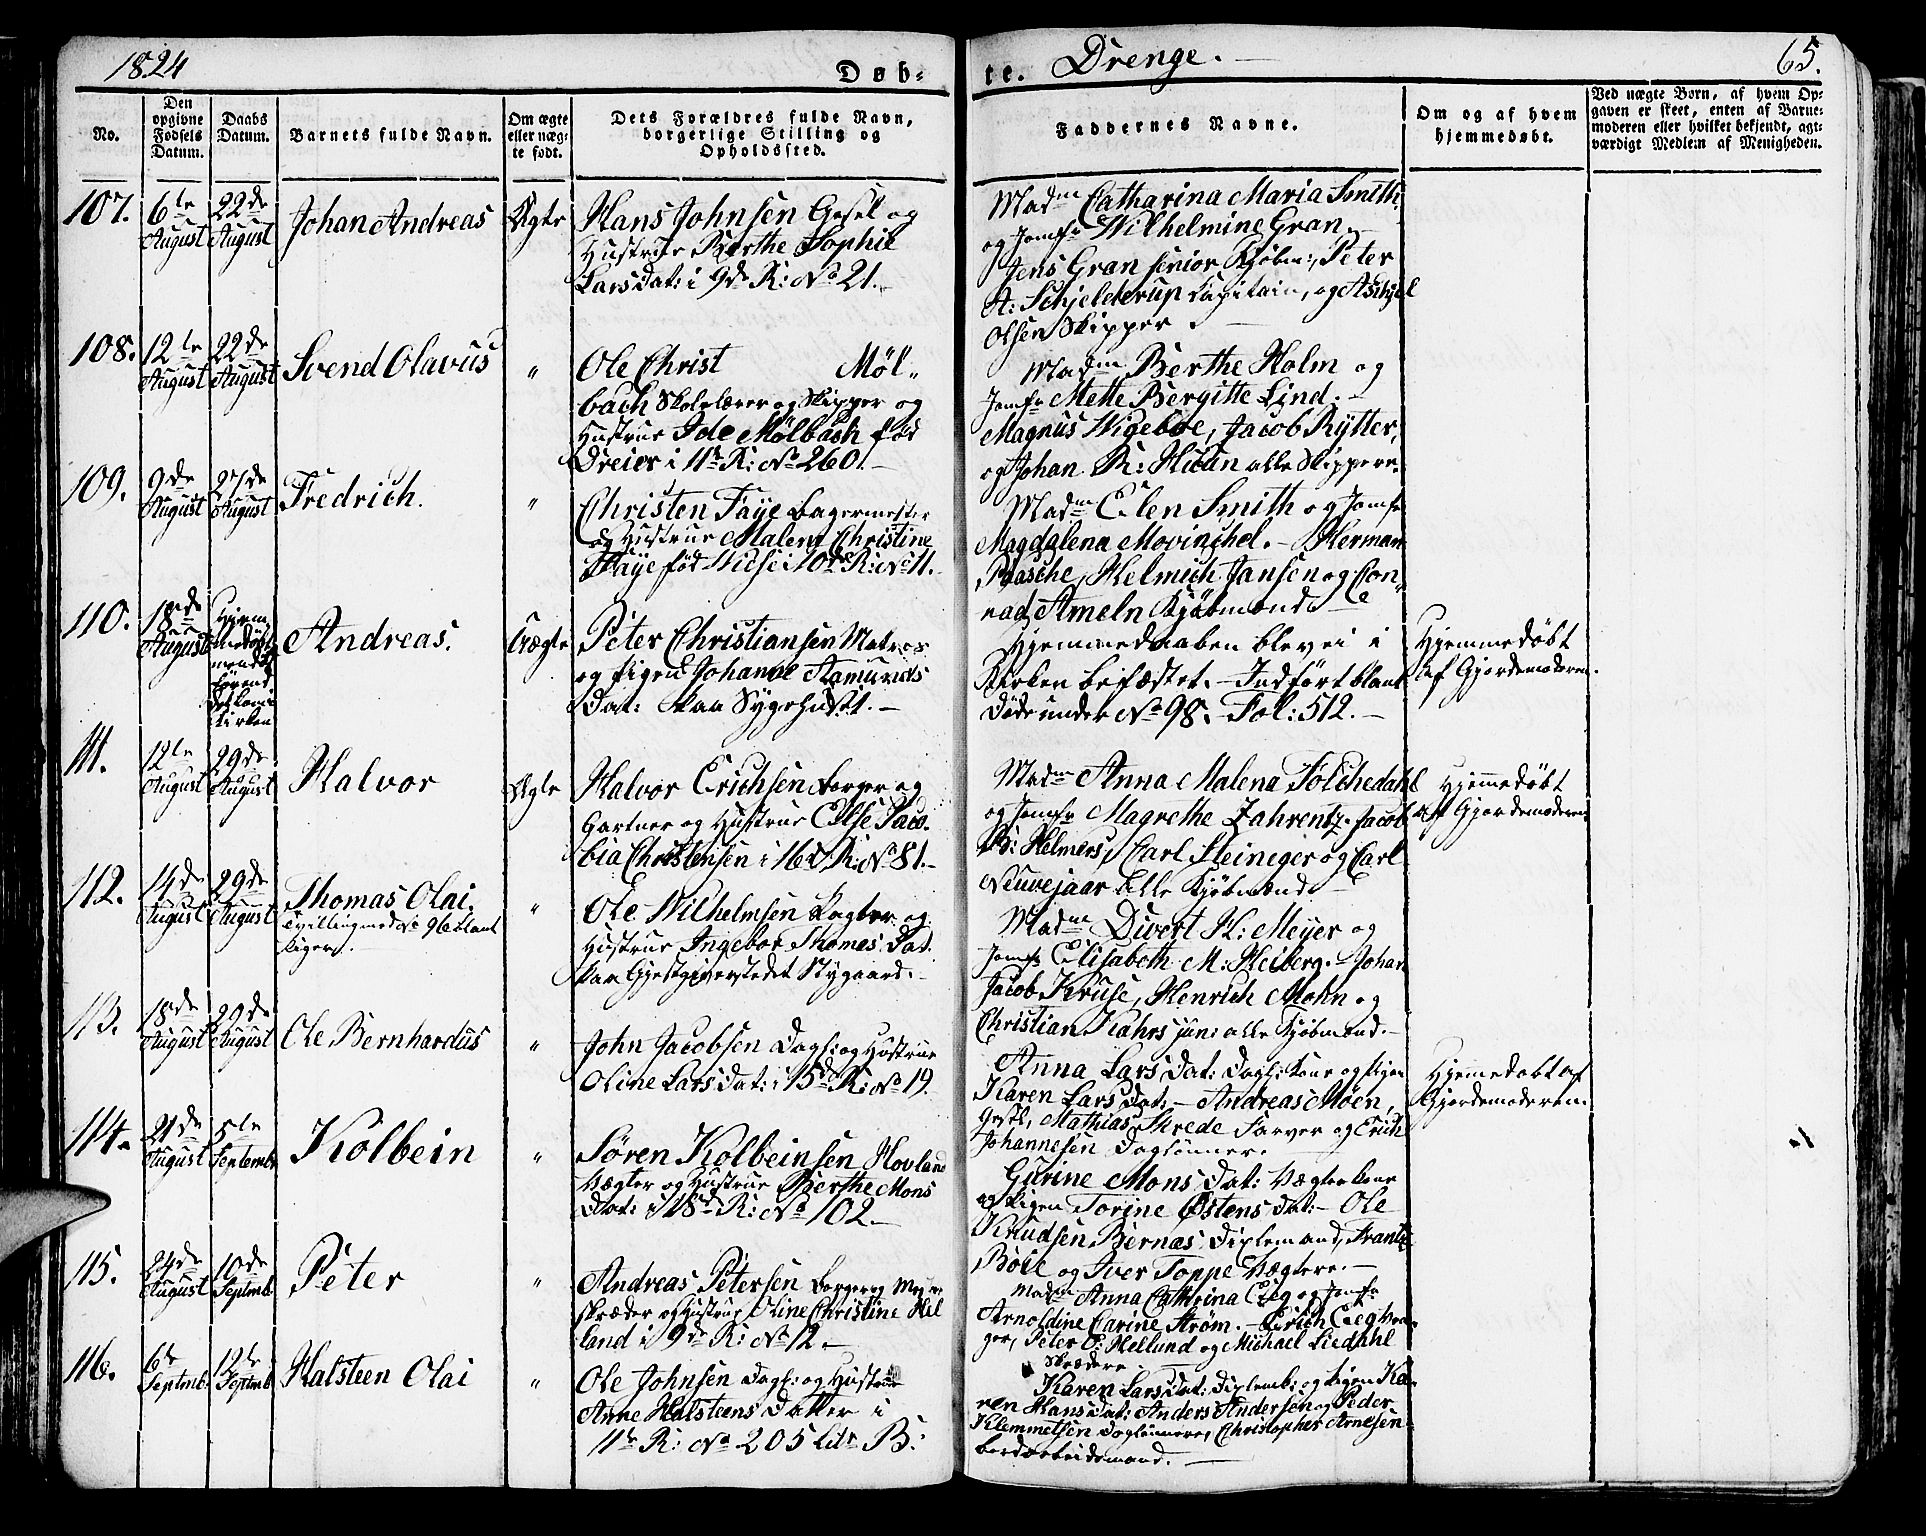 1824
Døb-
te. Drenge.
65.
No.
Den opgivne Fødsels Datum.
Daabs Datum.
Barnets fulde Navn.
Om ægte eller uæg-te født.
Dets Forældres fulde Navn, borgerlige Stilling og Opholdssted.
Faddernes Navne.
Om og af hvem hjemmedøbt.
Ved uægte Børn, af hvem Op-gaven er skeet, enten af Barne-moderen eller hvilket bekjendt, agt-værdigt Medlem af Menigheden.
107.
6te August
22de August
Johan Andreas
Ægte
Hans Johnsen Gesel og
Hustrue Berthe Sophie
Larsdat: i 9de R: No 21.
Madm Catharina Maria Smith
og Jomfr Wilhelmine Gran.
Jens Gran senior Kjøbm:, Peter
A: Schjelderup Capitain, og
Olsen Skipper.
108.
12te August
22de August
Svend Olavus
"
Ole Christ Møl-
bach Skolelærer og Skipper og
Hustrue Ide Mølbach fød
Dreier i 11te R: No 260.
Madm Berthe Holm og
Jomfr Mette Bergitte Lind.
Magnus Wigeboe, Jacob Rÿtter,
og Johan R: alle Skippere.
109.
9de August
27de August
Fredrich.
"
Christen Faye Bagermester
og Hustrue Malene Christine
Faye fød Wiese i 10de R: No 11.
Madm Elen Smith og Jomfr
Magdalena Movinchel. Herman
Paasche, Helmich Jansen og Con-
rad Ameln Kjøbmænd
110.
18de August
Andreas.
Uægte
Peter Christiansen Matros
og Pigen Johanne Aamunds
Dat: paa Sygehuset.
Hjemmedaaben blev ei i
Kirken befæstet. Indført blant
Døde under No 98. Fol: 512.
Hjemmedøbt
af Gjordemoderen.
111.
12te August
29de August
Halvor
Ægte
Halvor Erichsen Borger og
Gartner og Hustrue Else Jaco-
bia Christensen i 16de R: No 81.
Madm Anna Malena Foschedahl
og Jomfr Magrethe Zahrentz. Jacob
B: Helmers, Carl Steineger og Carl
Neuvejaar alle Kjøbmænd
Hjemmedøbt
af Gjordemoderen
112.
14de August
29de August
Thomas Olai.
Tvilling med No 96 blant
Piger.
"
Ole Wilhelmsen Vagter og
Hustrue Ingebor Thomas Dat.
paa Gjestgiverstedet Nygaard.
Madm Divert H: Meyer og
Jomfr Elisabeth M: Heiberg. Johan
Jacob Kruse, Henrich Mohn og
Christian Kahrs jun: alle Kjøbmænd.
113.
18de August
29de August
Ole Bernhardus
"
John Jacobsen Dagl: og Hustrue
Oline Larsdat: i 15de R: No 19.
Anna Lars Dat: Dagl: Kone og Pigen
Karen Lars Dat: Andreas Moen,
Gesel, Mathias Skrede Farver og Erich
Johannesen Daglønner.
Hjemmedøbt af
Gjordemoderen
114.
21de August
5te September
Kolbein
"
Søren Kolbeinsen Hovland
Vægter og Hustrue Berthe Mons
Dat: i 18de R: No 102.
Gurine Mons Dat: Vægter Kone
og Pigen Torine Østens Dat: Ole
Knudsen Bernæs Diplemand, Frantz
Bøle og Iver Toppe Vægtere.
115.
24de August
10de Septemb.
Peter
"
Andreas Petersen Borger og
skræder og Hustrue Oline Christine Hel
land i 9de R: No 12.
Madm Anna Cathrina Eeg og Jomfr
Arnoldine Carine Strøm. Erich Eeg
Peter E: Hellund og Michael Liedahl
Skrædere
116.
6te Septemb.
12te Septemb
Halsteen Olai
"
Ole Johnsen Dagl: og Hustrue
Anne Halsteens Datter i
11te R: No 205 Litr B.
Karen Larsdat: Diplemd: og Pigen Ka-
ren Hans dat: Anders Andersen og Peder
Klemmetsen Daglønnere, Christopher Arnesen